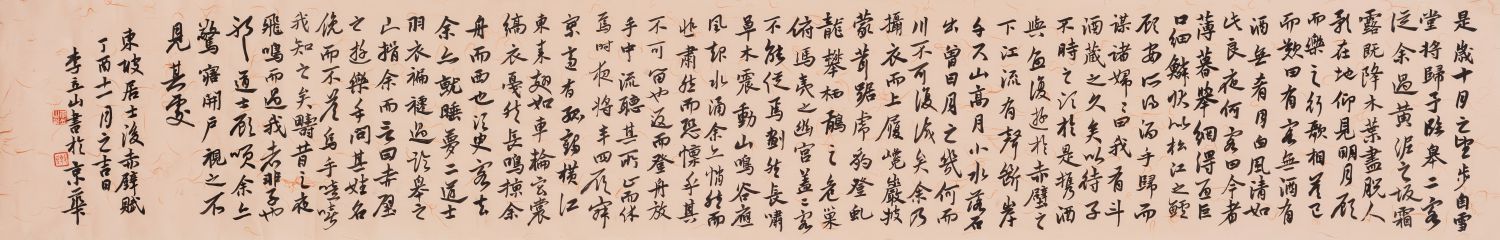 是歲十月之望步自雪
堂將歸于臨皋二客
從余過黃泥之坂霜
露既降木葉盡脫人
影在地仰見明月顧
而樂之行歌相答已
而歎曰有客無酒有
酒無肴月白風清如
此良夜何客曰今者
薄暮舉網得魚巨
口細鱗狀似松江之鱸
顧安所得酒乎歸而
謀諸婦婦曰我有斗
酒藏之久矣以待子
不時之須於是攜酒
與魚復遊於赤壁之
下江流有聲斷岸
千尺山高月小水落石
出曾日月之幾何而
川不可復識矣余乃
攝衣而上履巉巖披
蒙茸踞虎豹登虬
龍攀栖鶻之危巢
俯馮夷之幽宮蓋二客
不能從焉劃然長嘯
草木震動山鳴谷應
風起水涌余亦悄然而
悲肅然而恐懍乎其
不可留也返而登舟放
乎中流聽其所止而休
焉時夜將半四顧寂
寥適有孤鶴橫江
東來翅如車輪玄裳
縞衣戛然長鳴掠余
舟而西也須臾客去
余亦就睡夢二道士
羽衣蹁躚過臨皋之
下揖余而言曰赤壁
之遊樂乎問其姓名
俛而不答嗚呼噫嘻
我知之矣疇昔之夜
飛鳴而過我者非子也
耶道士顧笑余亦
驚寤開戶視之不
見其處
東坡居士後赤壁賦
丁酉十一月之吉日
李立山書於京華